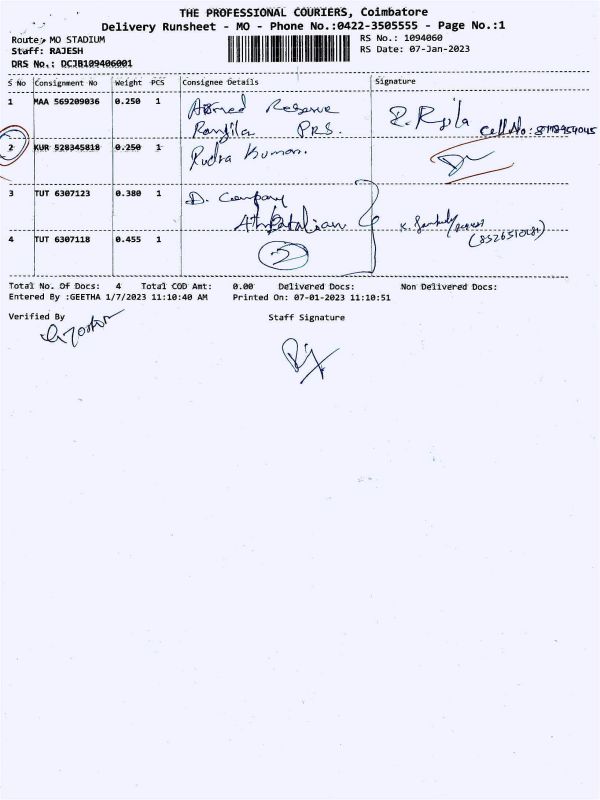 THE PROFESSIONAL COURIERS, Coimbatore
Delivery Runsheet - MO - Phone No.:0422-3505555 - Page No.:1
Route: MO STADIUM
RS No.: 1094060
Staff: RAJESH
RS Date: 07-Jan-2023
DRS No.: DCJB109406001
S No Consignment No Weight PCS Consignee Details Signature
1 MAA 569209036 0.250 1 Armed Reserve
PRS.
Cell No:
2 KUR 528345818 0.250 1 Rudra Kumar.
3 TUT 6307123 0.380 1 D. Company
4 TUT 6307118 0.455 1
Total No. Of Docs: 4 Total COD Amt: 0.00 Delivered Docs: Non Delivered Docs:
Entered By :GEETHA 1/7/2023 11:10:40 AM Printed On: 07-01-2023 11:10:51
Verified By Staff Signature